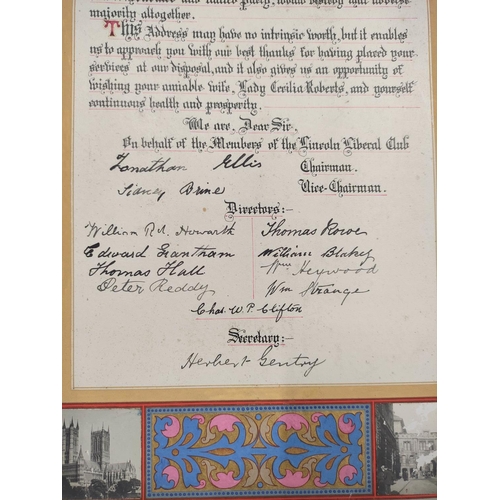 majority altogether.
This Address may have no intrinsic worth, but it enables
us to approach you with our best thanks for having placed your
services at our disposal, and it also gives us an opportunity of
wishing your amiable wife, Lady Cecilia Roberts, and yourself
continuous health and prosperity.
We are, Dear Sir,
On behalf of the Members of the Lincoln Liberal Club
Jonathan Ellis Chairman.
Sidney Brine Vice-Chairman.
Directors:-
William Rd. Howarth Thomas Rowe
Edward Grantham William Blakey
Thomas Hall Wm Heywood
Peter Reddy Wm Strange
Chas. W. P. Clifton
Secretary:-
Herbert Gentry